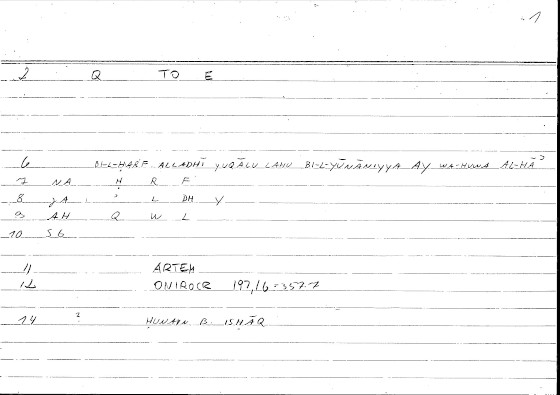 1
2 Q TO E
6 BI-L-ḤARF ALLADHĪ YUQĀLU LAHU BI-L-YŪNĀNIYYA AY WA-HUWA AL-HĀʾ
7 NA Ḥ R F
8 ʾ L DH Y
9 AH Q W L
10 SG
11 ARTEM
12 ONIROCR 197,16 = 357.7
14 ḤUNAIN B. ISḤĀQ